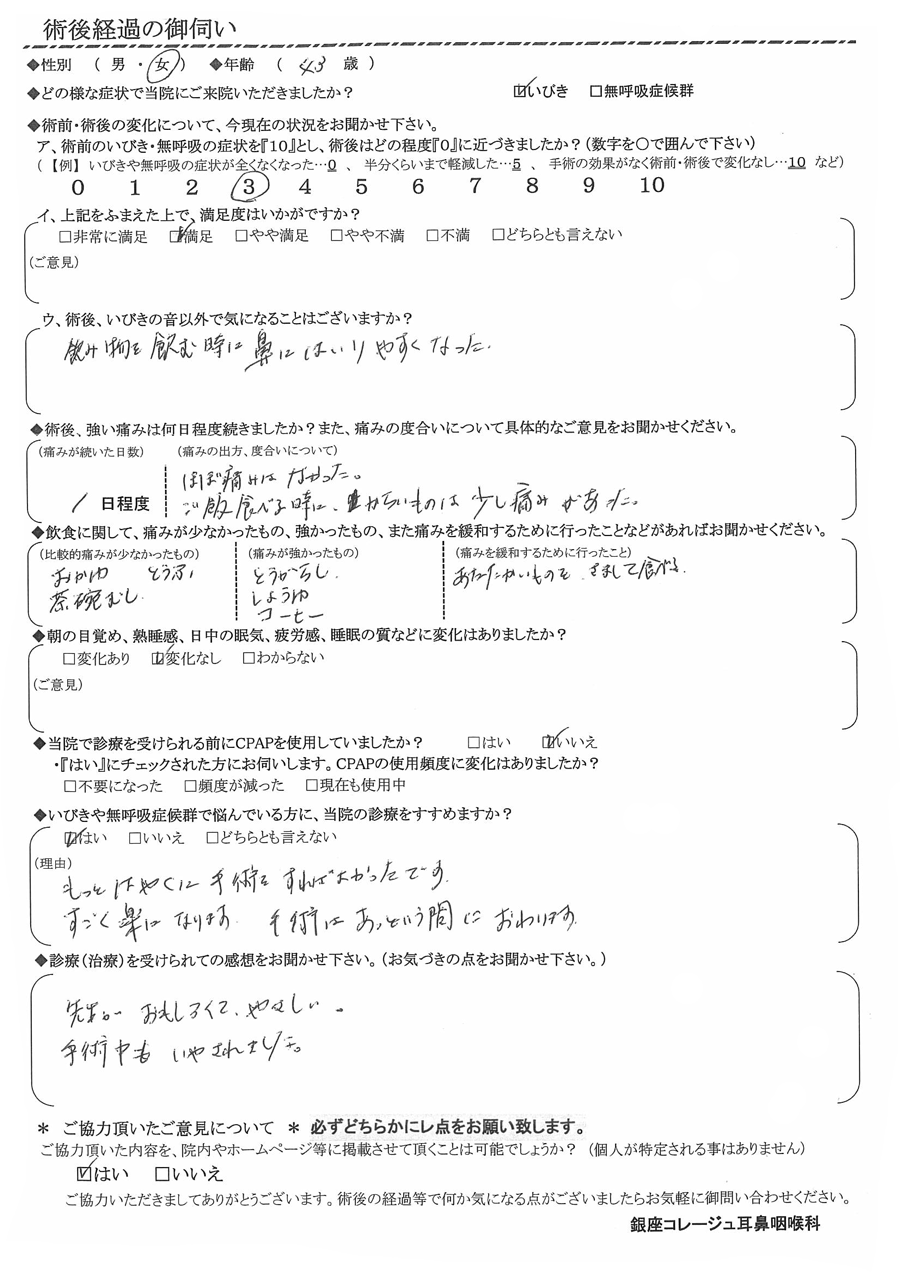 術後経過の御伺い
◆性別 ( 男 ・ 女 ) ◆年齢 ( 43 歳 )
◆どの様な症状で当院にご来院いただきましたか? ☑いびき □無呼吸症候群
◆術前・術後の変化について、今現在の状況をお聞かせ下さい。
ア、術前のいびき・無呼吸の症状を『10』とし、術後はどの程度『0』に近づきましたか?(数字を○で囲んで下さい)
(【例】 いびきや無呼吸の症状が全くなくなった…0 、 半分くらいまで軽減した…5 、 手術の効果がなく術前・術後で変化なし…10 など)
0 1 2 3 4 5 6 7 8 9 10
イ、上記をふまえた上で、満足度はいかがですか?
□非常に満足 ☑満足 □やや満足 □やや不満 □不満 □どちらとも言えない
(ご意見)
ウ、術後、いびきの音以外で気になることはございますか?
飲み物を飲む時に鼻にはいりやすくなった.
◆術後、強い痛みは何日程度続きましたか?また、痛みの度合いについて具体的なご意見をお聞かせください。
(痛みが続いた日数) (痛みの出方、度合いについて)
ほぼ痛みはなかった。
1 日程度 ご飯食べる時に、からいものは少し痛みがあった。
◆飲食に関して、痛みが少なかったもの、強かったもの、また痛みを緩和するために行ったことなどがあればお聞かせください。
(比較的痛みが少なかったもの) (痛みが強かったもの) (痛みを緩和するために行ったこと)
おかゆ とうふ とうがらし. あたたかいものを さまして食べる.
茶碗むし. しょうゆ
コーヒー
◆朝の目覚め、熟睡感、日中の眠気、疲労感、睡眠の質などに変化はありましたか?
□変化あり ☑変化なし □わからない
(ご意見)
◆当院で診療を受けられる前にCPAPを使用していましたか? □はい ☑いいえ
・『はい』にチェックされた方にお伺いします。CPAPの使用頻度に変化はありましたか?
□不要になった □頻度が減った □現在も使用中
◆いびきや無呼吸症候群で悩んでいる方に、当院の診療をすすめますか?
☑はい □いいえ □どちらとも言えない
(理由)
もっとはやくに手術をすればよかったです.
すごく楽になります. 手術はあっという間におわります.
◆診療(治療)を受けられての感想をお聞かせ下さい。(お気づきの点をお聞かせ下さい。)
先生が おもしろくて、やさしい。
手術中も いやされました。
* ご協力頂いたご意見について * 必ずどちらかにレ点をお願い致します。
ご協力頂いた内容を、院内やホームページ等に掲載させて頂くことは可能でしょうか? (個人が特定される事はありません)
☑はい □いいえ
ご協力いただきましてありがとうございます。術後の経過等で何か気になる点がございましたらお気軽に御問い合わせください。
銀座コレージュ耳鼻咽喉科